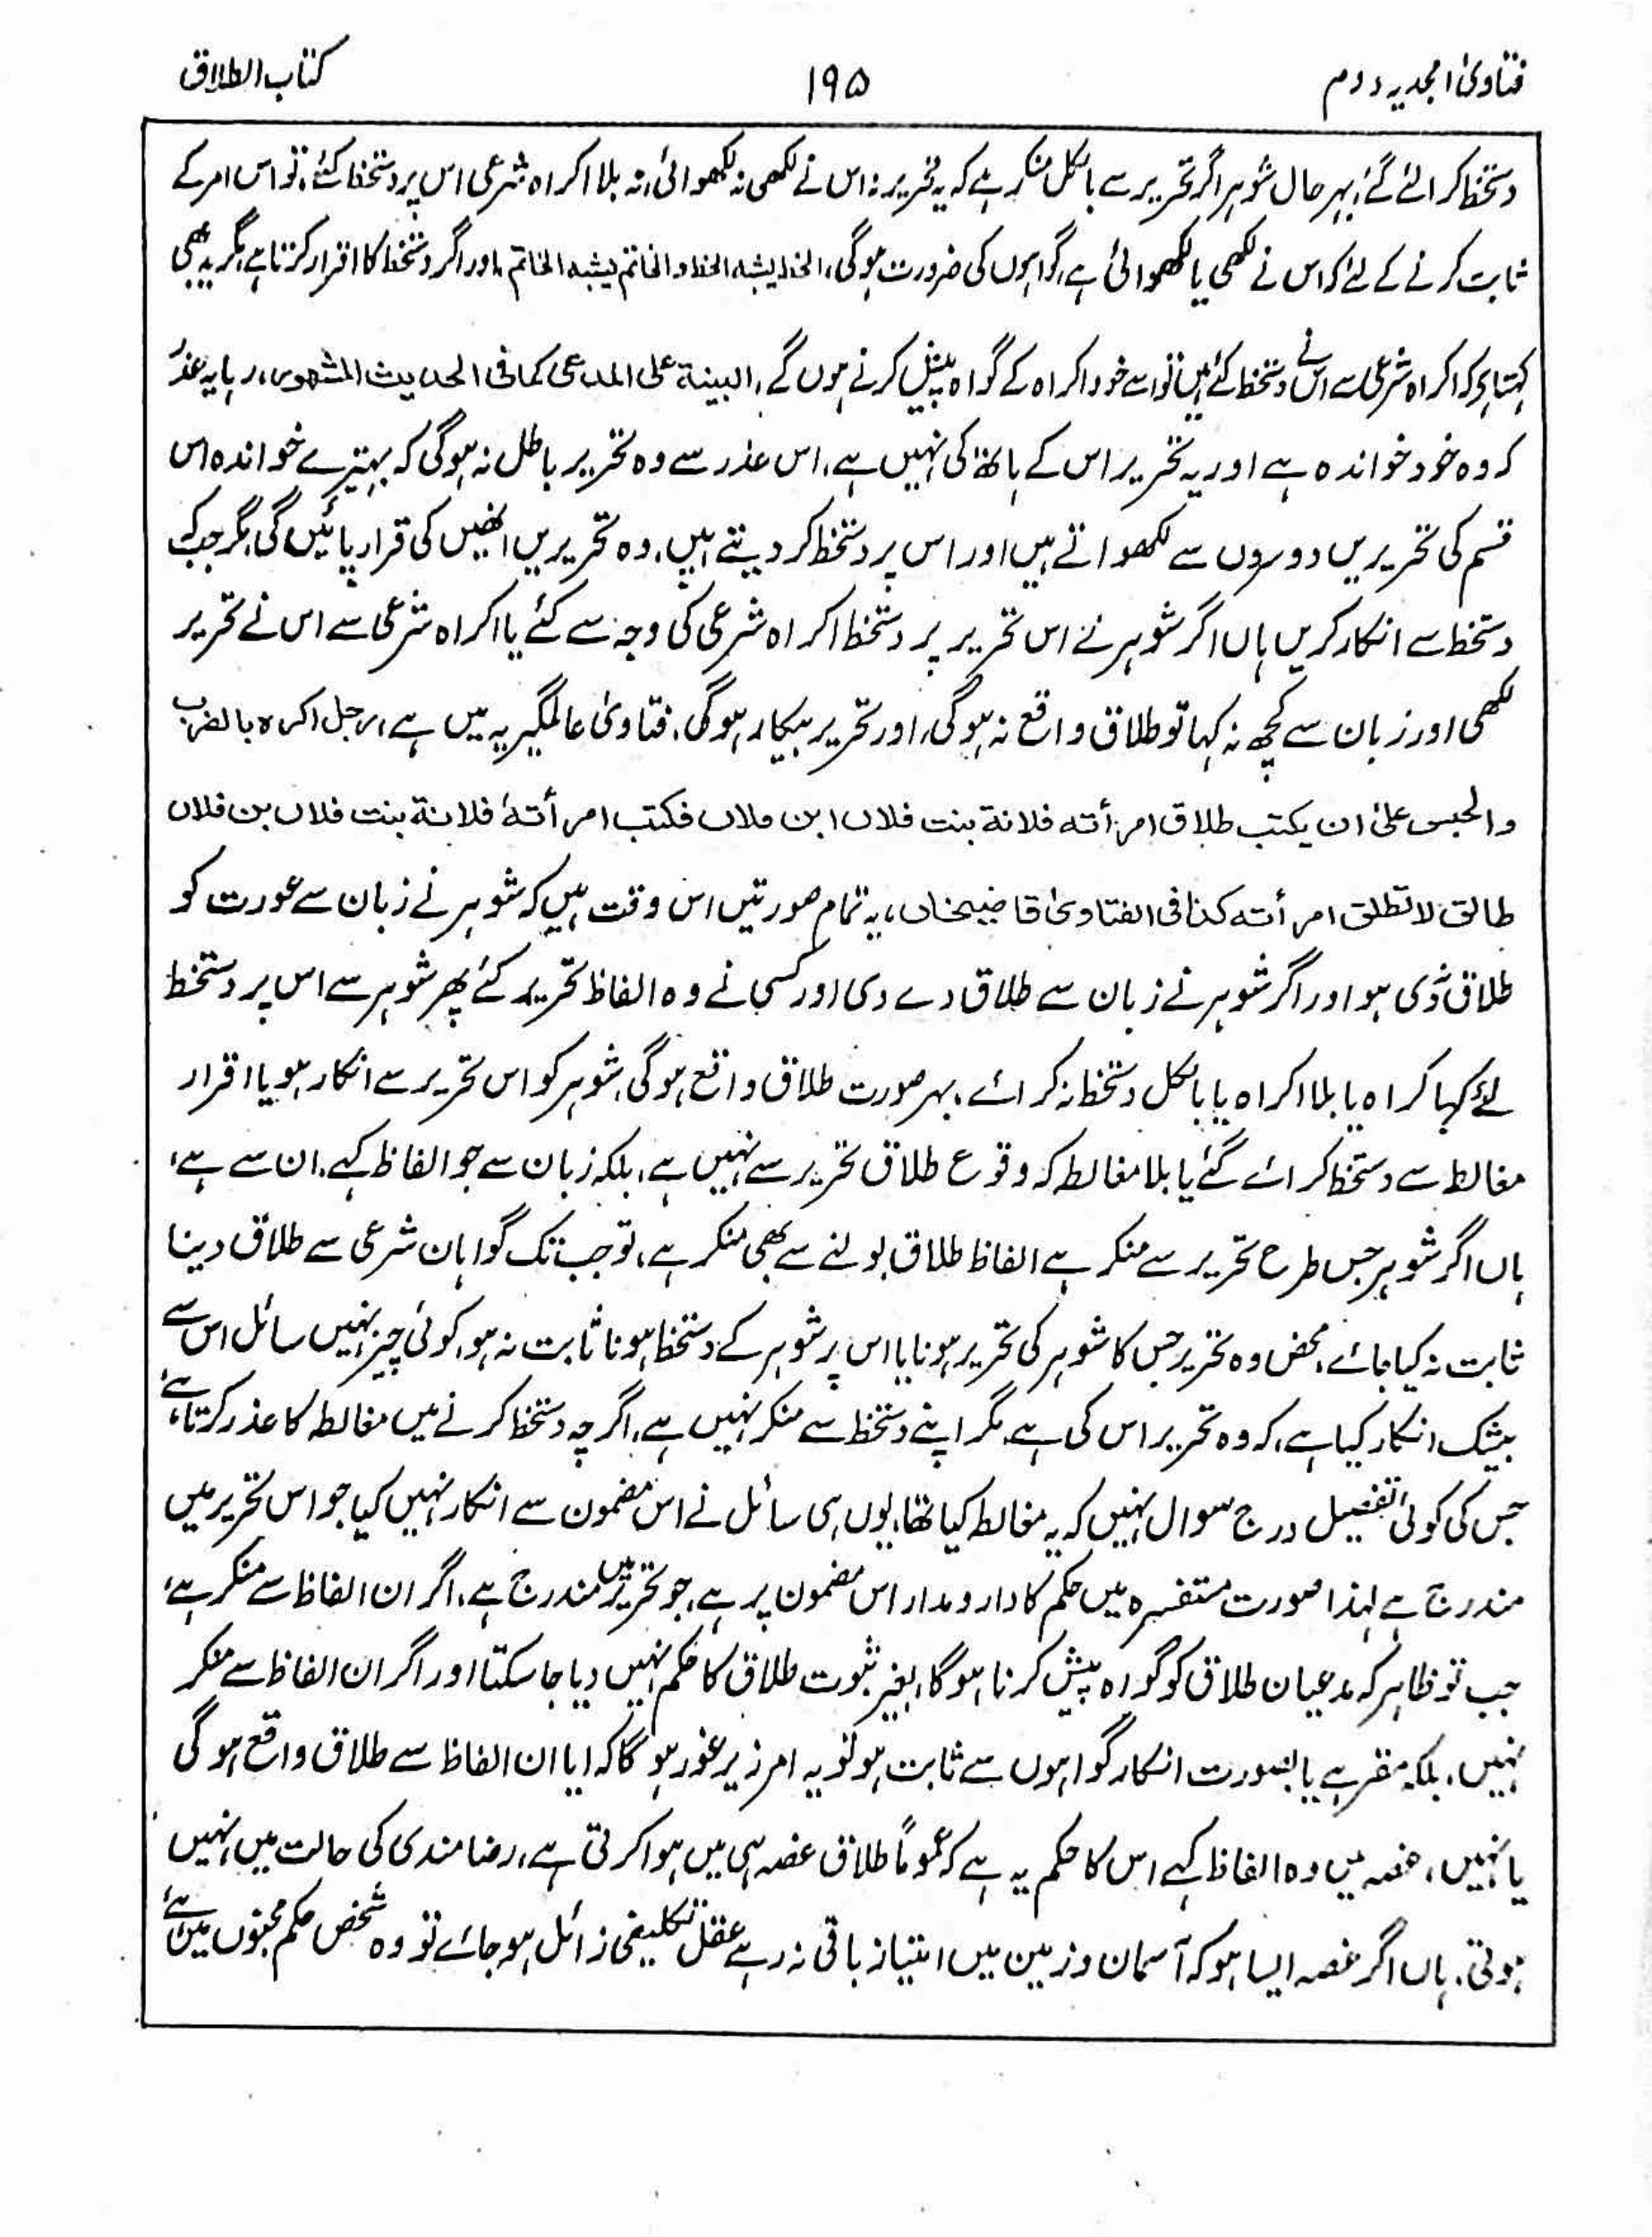 فتاویٰ امجدیہ دوم
۱۹۵
کتاب الطلاق
دستخط کرالئے گئے، بہر حال شوہر اگر تحریر سے بالکل منکر ہے کہ یہ تحریر نہ اس نے لکھی نہ لکھوائی، نہ بلا اکراہ شرعی اس پر دستخط کئے، تو اس امر کے
ثابت کرنے کے لئے کہ اس نے لکھی یا لکھوائی ہے، گواہوں کی ضرورت ہوگی، الخط یشبہ الخط والخاتم یشبہ الخاتم، اور اگر دستخط کا اقرار کرتا ہے، مگر یہ بھی
کہتا ہو کہ اکراہ شرعی سے اس نے دستخط کئے ہیں تو اسے خود اکراہ کے گواہ پیش کرنے ہوں گے، البینة علی المدعی کما فی الحدیث المشهور، رہا یہ عذر
کہ وہ خود خواندہ ہے اور یہ تحریر اس کے ہاتھ کی نہیں ہے، اس عذر سے وہ تحریر باطل نہ ہوگی کہ بہتیرے خواندہ اس
قسم کی تحریریں دوسروں سے لکھواتے ہیں اور اس پر دستخط کر دیتے ہیں، وہ تحریریں انھیں کی قرار پائیں گی، مگر جب کہ
دستخط سے انکار کریں ہاں اگر شوہر نے اس تحریر پر دستخط اکراہ شرعی کی وجہ سے کئے یا اکراہ شرعی سے اس نے تحریر
لکھی اور زبان سے کچھ نہ کہا تو طلاق واقع نہ ہوگی، اور تحریر بیکار ہوگی، فتاویٰ عالمگیریہ میں ہے، رجل اکرہ بالضرب
والحبس علیٰ ان یکتب طلاق امرأته فلانة بنت فلاں ابن فلاں فکتب امرأتهٗ فلانة بنت فلاں بن فلاں
طالق لا تطلق امرأته کذا فی الفتاویٰ قاضیخاں، یہ تمام صورتیں اس وقت ہیں کہ شوہر نے زبان سے عورت کو
طلاق نہ دی ہو اور اگر شوہر نے زبان سے طلاق دے دی اور کسی نے وہ الفاظ تحریر کئے پھر شوہر سے اس پر دستخط
لئے کہا کراہ یا بلا اکراہ یا بالکل دستخط نہ کرائے، بہر صورت طلاق واقع ہوگی، شوہر کو اس تحریر سے انکار ہو یا اقرار
مغالطہ سے دستخط کرائے گئے یا بلا مغالطہ کہ وقوع طلاق تحریر سے نہیں ہے، بلکہ زبان سے جو الفاظ کہے، ان سے ہے،
ہاں اگر شوہر جس طرح تحریر سے منکر ہے الفاظ طلاق بولنے سے بھی منکر ہے، تو جب تک گواہان شرعی سے طلاق دینا
ثابت نہ کیا جائے، محض وہ تحریر جس کا شوہر کی تحریر ہونا یا اس پر شوہر کے دستخط ہونا ثابت نہ ہو، کوئی چیز نہیں سائل اس سے
بیشک انکار کیا ہے، کہ وہ تحریر اس کی ہے، مگر اپنے دستخط سے منکر نہیں ہے، اگرچہ دستخط کرنے میں مغالطہ کا عذر کرتا ہے،
جس کی کوئی تفصیل درج سوال نہیں کہ یہ مغالطہ کیا تھا، یوں ہی سائل نے اس مضمون سے انکار نہیں کیا جو اس تحریر میں
مندرج ہے لہذا صورت مستفسرہ میں حکم کا دارومدار اس مضمون پر ہے، جو تحریر میں مندرج ہے، اگر ان الفاظ سے منکر ہے،
جب تو ظاہر کہ مدعیان طلاق کو گواہ پیش کرنا ہوگا، بغیر ثبوت طلاق کا حکم نہیں دیا جا سکتا اور اگر ان الفاظ سے منکر
نہیں، بلکہ مقر ہے یا بصورت انکار گواہوں سے ثابت ہو تو یہ امر زیر غور ہوگا کہ ایا ان الفاظ سے طلاق واقع ہوگی
یا نہیں، غصہ میں وہ الفاظ کہے اس کا حکم یہ ہے کہ عموماً طلاق غصہ ہی میں ہوا کرتی ہے، رضامندی کی حالت میں نہیں
ہوتی، ہاں اگر غصہ ایسا ہو کہ آسمان و زمین میں امتیاز باقی نہ رہے عقل تکلیفی زائل ہو جائے تو وہ شخص حکم مجنوں میں ہے